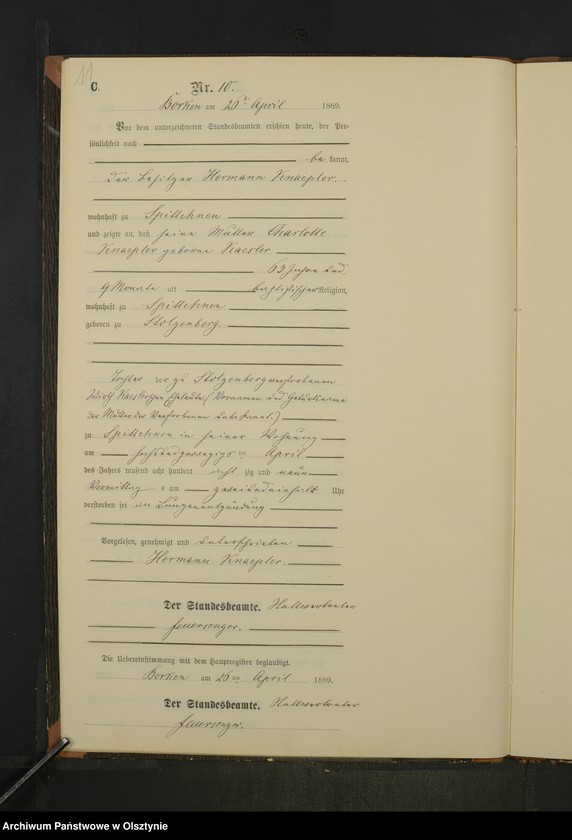 11
C.
Nr. 10.
Borken am 26ten April 1889.
Vor dem unterzeichneten Standesbeamten erschien heute, der Per-
sönlichkeit nach
bekannt,
der Besitzer Hermann Knaepler.
wohnhaft zu Spittehnen
und zeigte an, daß seine Mutter Charlotte
Knaepler geborene Kaesler
63 Jahre und
9 Monate alt baptistischer Religion,
wohnhaft zu Spittehnen
geboren zu Stolzenberg.
Tochter der zu Stolzenberg verstorbenen
Wirth Eheleute (Vornamen und Geburtsname
der Mutter der Verstorbenen unbekannt.)
zu Spittehnen in seiner Wohnung
am sechsundzwanzigsten April
des Jahres tausend acht hundert achtzig und neun
Vormittag s um Uhr
verstorben sei an Lungenentzündung
Vorgelesen, genehmigt und unterschrieben
Hermann Knaepler.
Der Standesbeamte. Stellvertreter
Feuersenger.
Die Uebereinstimmung mit dem Hauptregister beglaubigt.
Borken am 26ten April 1889.
Der Standesbeamte. Stellvertreter
Feuersenger.
Archiwum Państwowe w Olsztynie